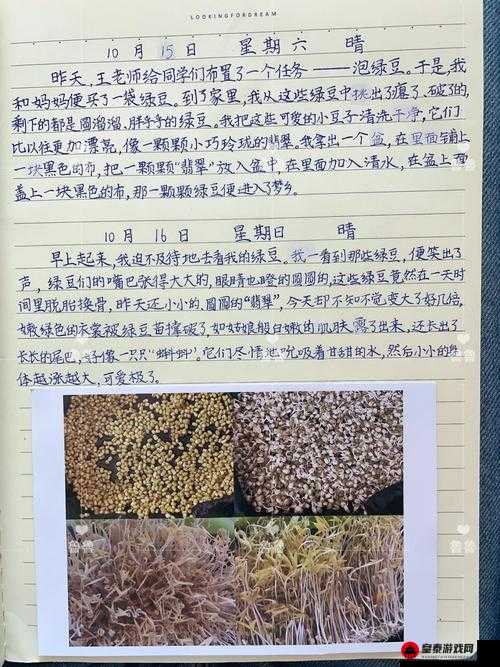 LOOKINGFORDREAM
10月15日 星期六 晴
昨天,王老师给同学们布置了一个任务——泡绿豆。于是,我
和妈妈便买了一袋绿豆。到了家里,我从这些绿豆中挑出了瘪了、破了的,
剩下的都是圆溜溜、胖乎乎的绿豆。我把这些可爱的小豆子清洗干净,它们
比以往更加漂亮,像一颗颗小巧玲珑的翡翠。我拿出一个盆,在里面铺上
一块黑色的布,把一颗颗“翡翠”放入盆中,在里面加入清水,在盆上面
盖上一块黑色的布,那一颗颗绿豆便进入了梦乡。
10月16日 星期日 晴
早上起来,我迫不及待地去看我的绿豆。我一看到那些绿豆,便笑出了
声,绿豆们的嘴巴张得大大的,眼睛也瞪的圆圆的,这些绿豆竟然在一天时
间里脱胎换骨,昨天还小小的、圆圆的“翡翠”,今天却不知不觉变大了好几倍,
嫩绿色的衣裳被绿豆苗撑破了,如姑娘般白嫩的肌肤露了出来,还长出了
长长的尾巴,好像一只只“蝌蚪”。它们尽情地吮吸着甘甜的水,然后小小的身
体越涨越大,可爱极了。
皇泰游戏网